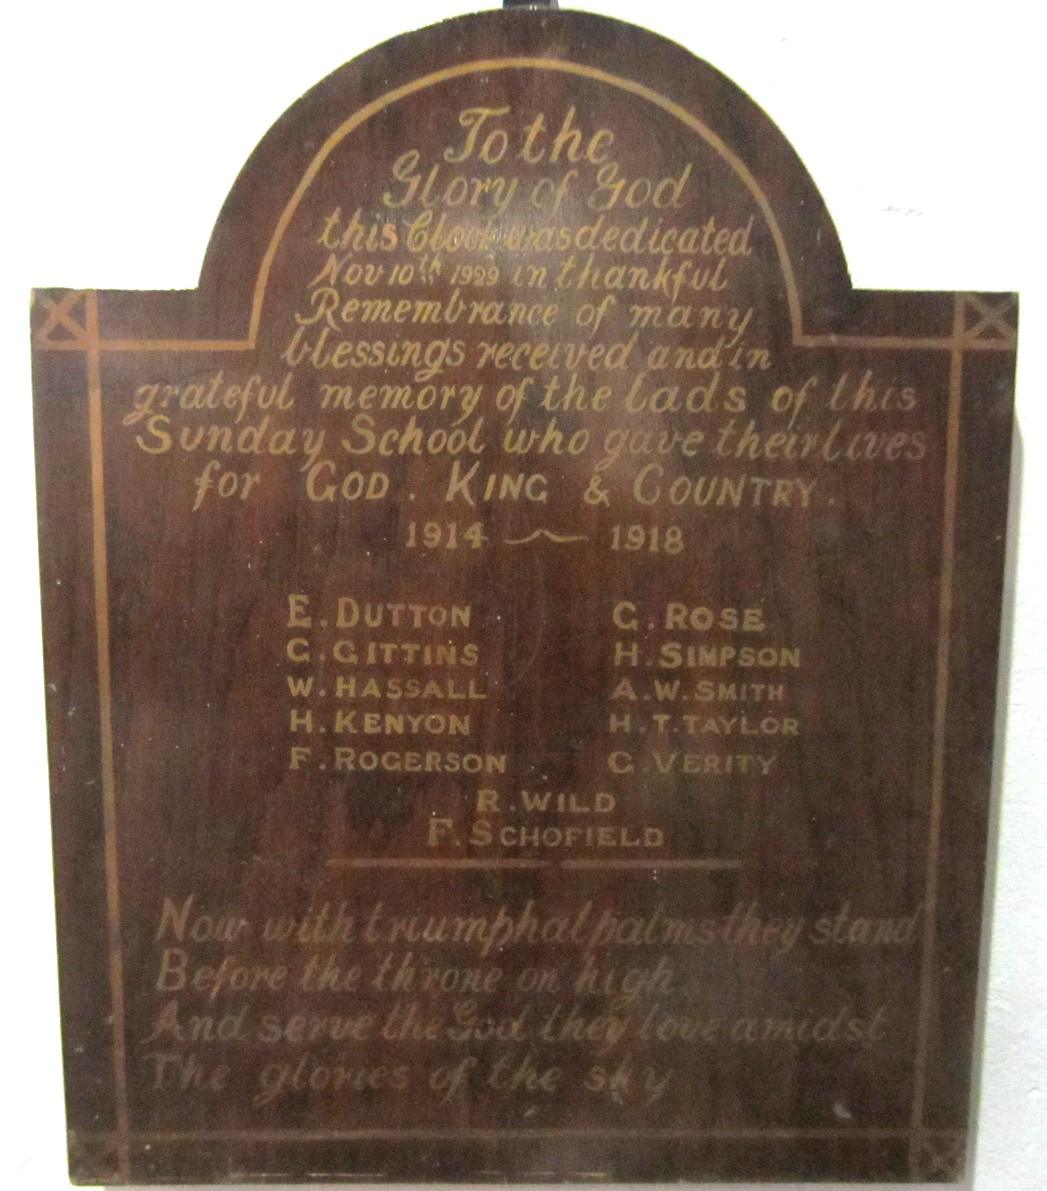 To the
Glory of God
this Clock was dedicated
Nov 10th 1929 in thankful
Remembrance of many
blessings received and in
grateful memory of the lads of this
Sunday School who gave their lives
for GOD. KING & COUNTRY.
1914 ~ 1918
E. DUTTON G. ROSE
G. GITTINS H. SIMPSON
W. HASSALL A. W. SMITH
H. KENYON H. T. TAYLOR
F. ROGERSON G. VERITY
R. WILD
F. SCHOFIELD
Now with triumphal palms they stand
Before the throne on high
And serve the God they love amidst
The glories of the sky